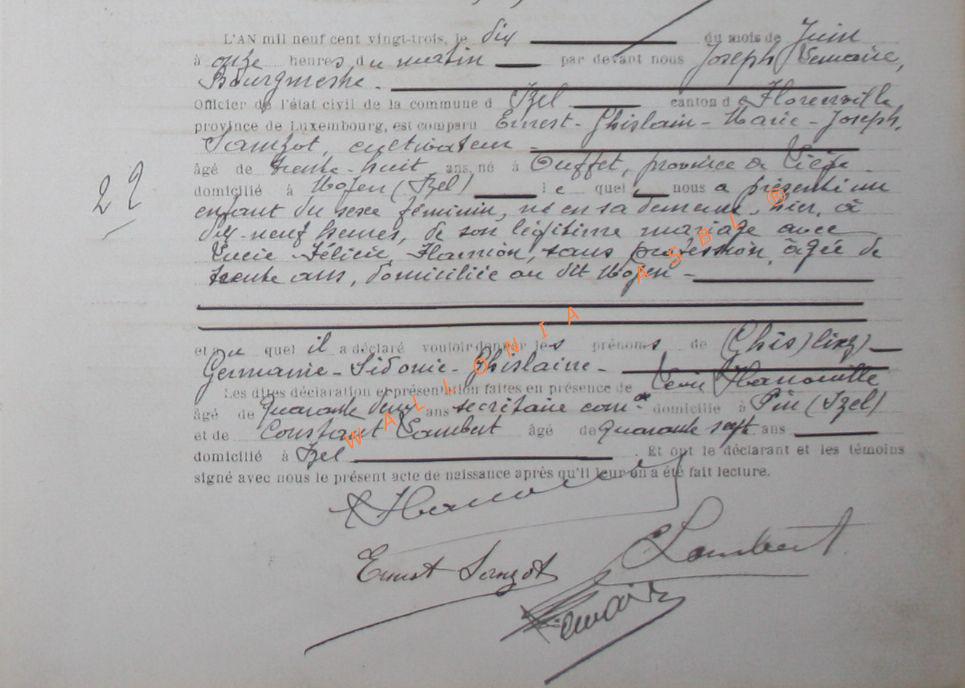 L'AN mil neuf cent vingt-trois, le dix du mois de Juin
à onze heures du matin par devant nous Joseph Lemaire,
Bourgmestre.
Officier de l'état civil de la commune d Izel canton d e Florenville
province de Luxembourg, est comparu Ernest-Ghislain-Marie-Joseph,
Sanzot, cultivateur
âgé de trente-huit ans, né à Ouffet, province de Liége
domicilié à Moyen (Izel) le quel nous a présenté un
enfant du sexe féminin, né en sa demeure, hier, à
dix-neuf heures, de son légitime mariage avec
Lucie Félicie, sans profession, âgée de
trente ans, domiciliée au dit Moyen
22
et au quel il a déclaré vouloir donner les prénoms de (Ghisline)
Germaine-Sidonie-Ghislaine
Les dites déclaration et présentation faites en présence de Hanouille
âgé de quarante deux ans secrétaire comal domicilié à Pin (Izel)
et de Constant Lambert âgé de quarante sept ans
domicilié à Izel . Et ont le déclarant et les témoins
signé avec nous le présent acte de naissance après qu'il leur en a été fait lecture.
Ernest Sanzot
C Lambert
Lemaire
WALLONIA ASBL ©